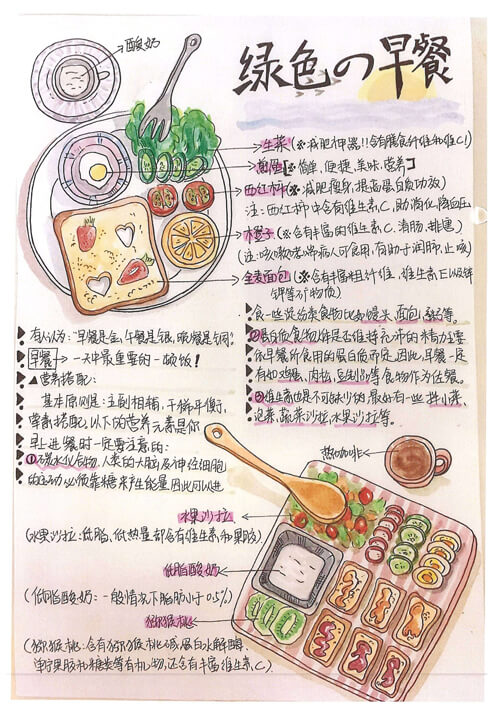 绿色の早餐
酸奶
生菜(※减肥神器!!含有膳食纤维和维C!)
[※简单、便捷、美味、营养]
西红柿(※减肥瘦身,提高蛋白质功放)
注:西红柿中含有维生素C,助消化,降血压
橙子(※含丰富的维生素C,清肠、排毒)
(注:咳嗽哮喘病人可食用,有助于润肺,止咳)
全麦面包(※含有丰富粗纤维、维生素E以及锌
钾等矿物质)
有人认为:"早餐是金,午餐是银,晚餐是铜".
早餐→一天中最重要的一顿饭!
▲营养搭配:
基本原则是:主副相辅,干稀平衡,
营养搭配,以下的营养元素是你
早上进餐时一定要注意的:
①碳水化合物,人类的大脑及神经细胞
的运动必须靠糖来产生能量,因此可以进
食一些淀粉类食物,比如馒头、面包、粥等。
②蛋白质食物人体是否维持充沛的精力主要
依早餐所食用的蛋白质而定,因此,早餐一定
有如鸡蛋、肉松、豆制品等食物作为佐餐。
③维生素也是不可缺少的,最好有一些拌小菜、
泡菜、蔬菜沙拉、水果沙拉等。
热咖啡
水果沙拉
(水果沙拉:低脂、低热量都含有维生素和果胶)
低脂酸奶
(低脂酸奶:一般情况下脂肪小于0.5%)
猕猴桃
(猕猴桃:含有猕猴桃碱、蛋白水解酶、
单宁果胶和糖类等有机物,还含有丰富维生素C.)